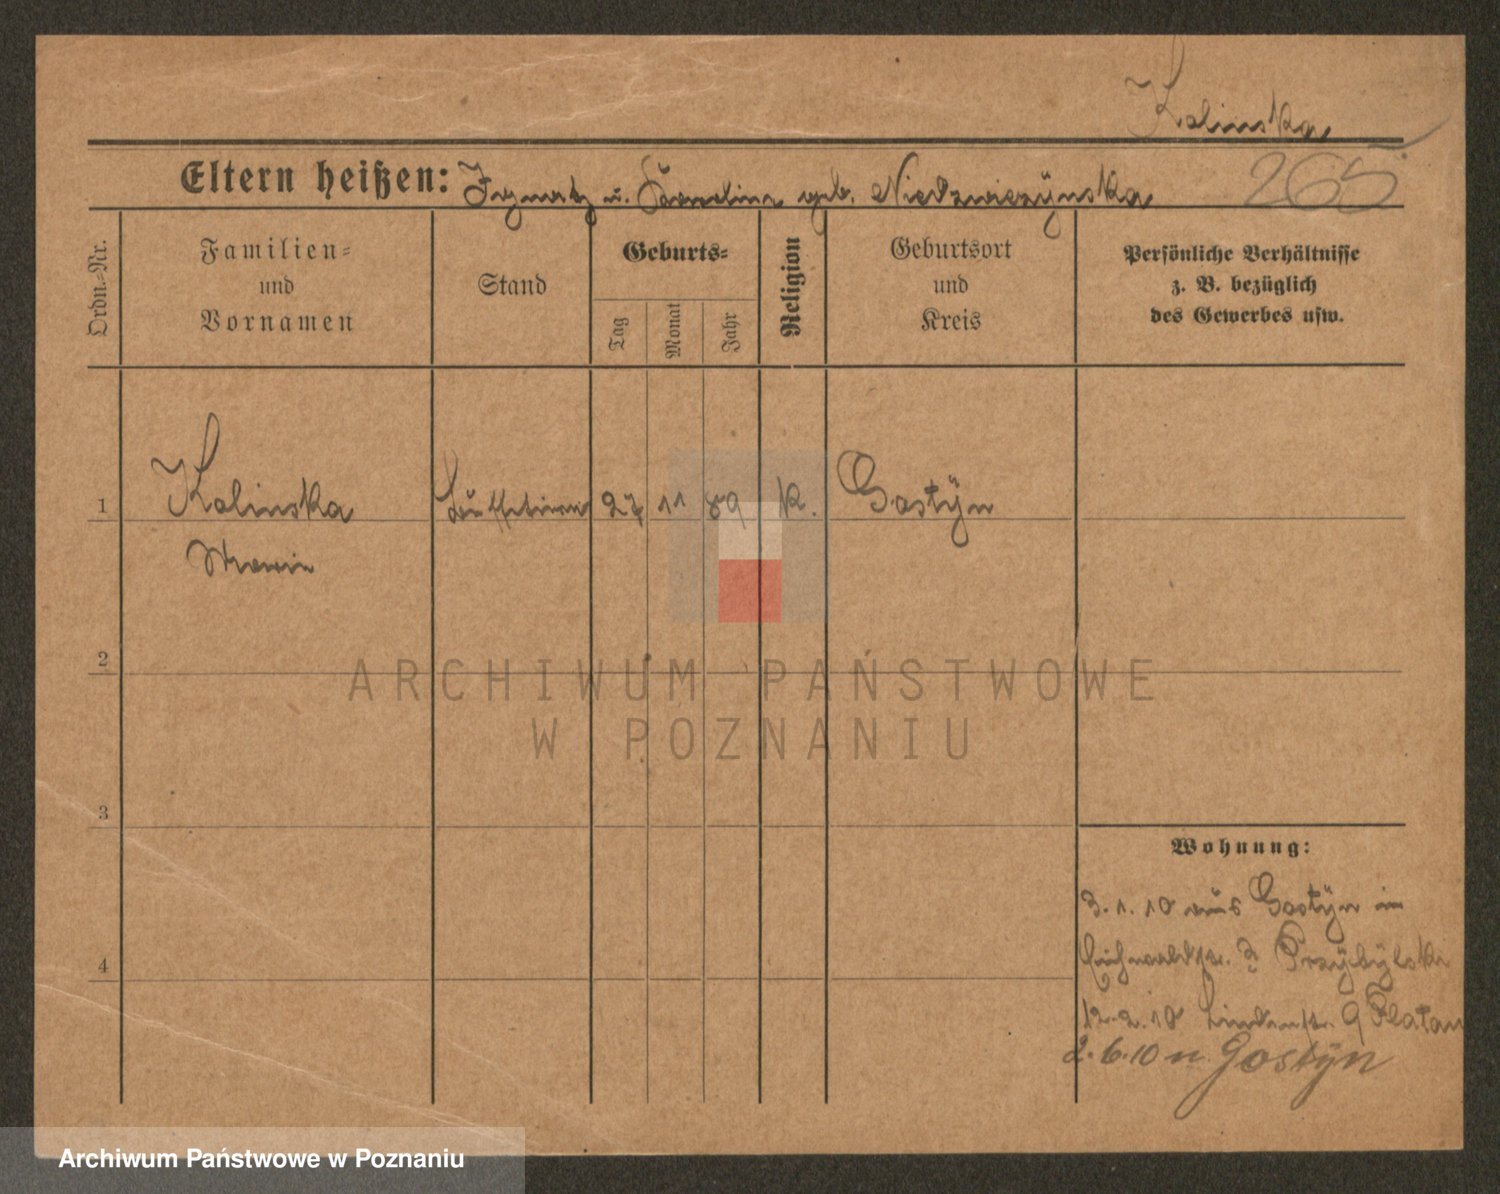 Kalinska
Eltern heißen: Ignatz u. Karolina geb. Niedzwiezynska 265
Ordn.-Nr.
Familien=
und
Vornamen
Stand
Geburts=
Tag
Monat
Jahr
Religion
Geburtsort
und
Kreis
Persönliche Verhältnisse
z. B. bezüglich
des Gewerbes usw.
1 Kalinska 27 11 89 K. Gostÿn
Maria
2
3
4
Wohnung:
3. 1. 10 aus Gostÿn in
Eichwaldstr. Przÿbÿlski
12. 2. 10 Lindenstr. 9 Platau
2. 6. 10 n Gostÿn
ARCHIWUM PAŃSTWOWE
W POZNANIU
Archiwum Państwowe w Poznaniu